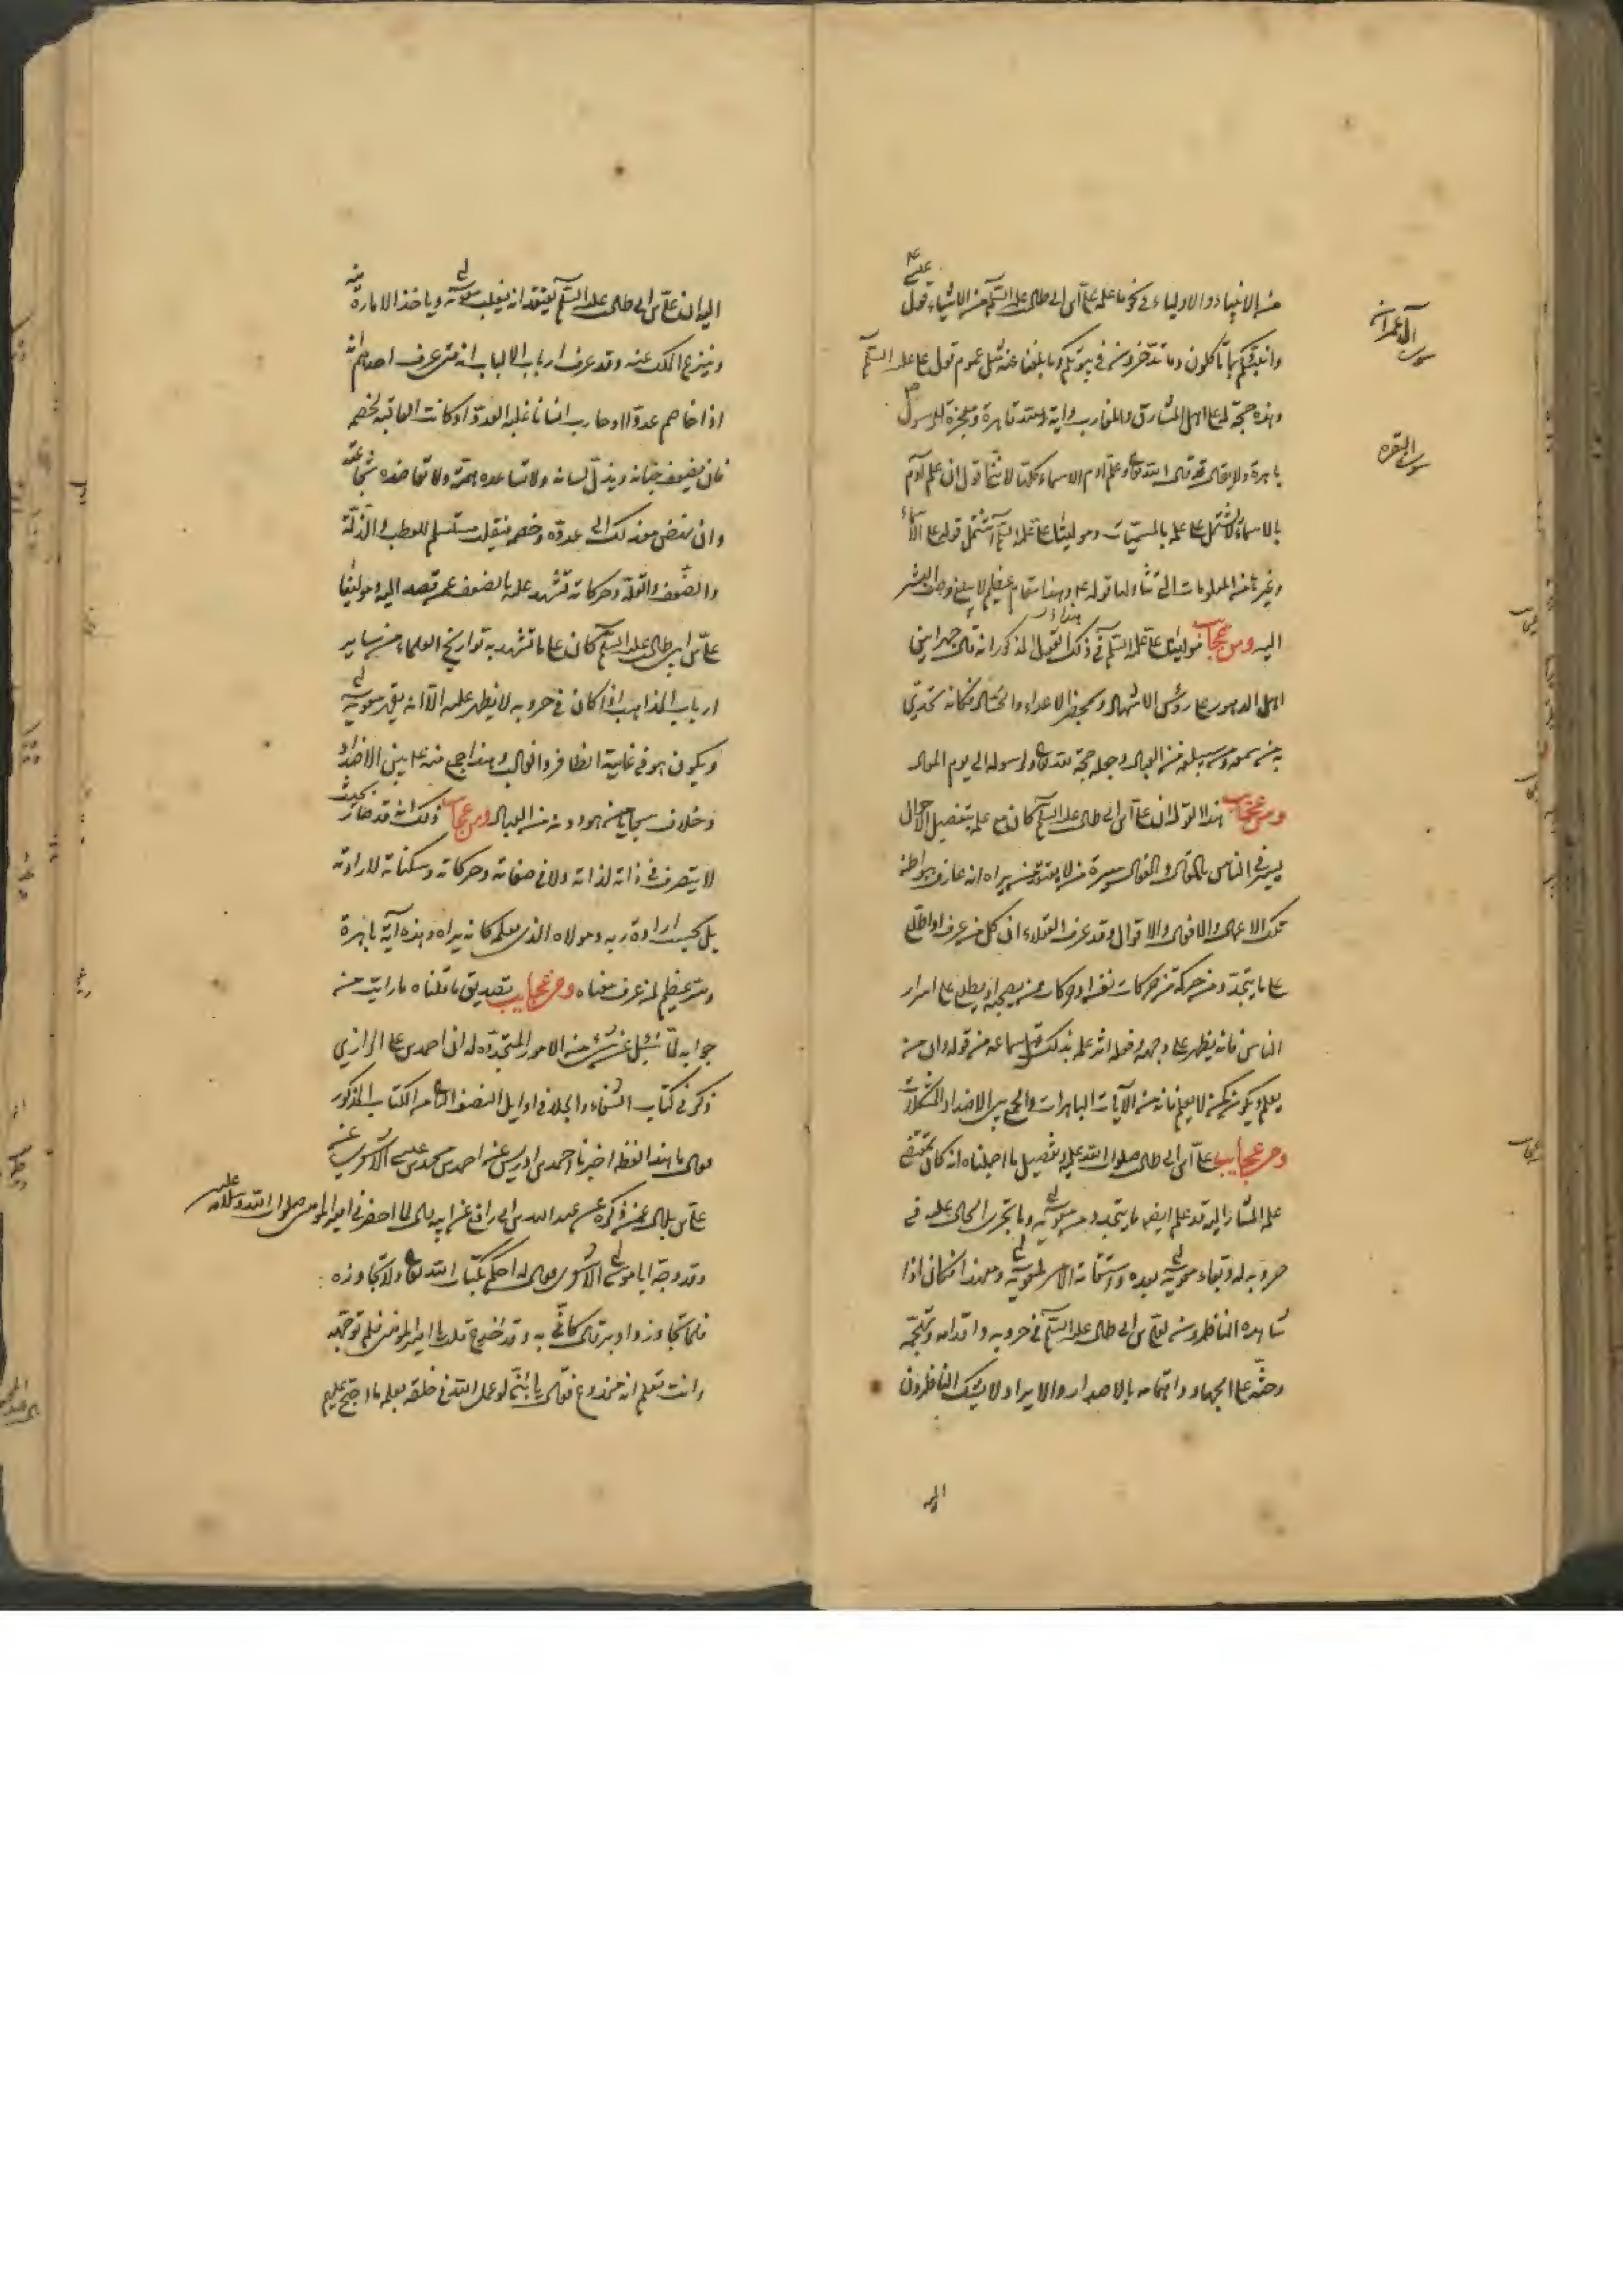 من الانبياء والاولياء في نحو ما علمه علي بن ابي طالب عليه السلم من الاشياء قول عيسى ع
وانبئكم بما تاكلون وما تدخرون في بيوتكم وما بلغنا عنه مثل عموم قول علي عليه السلم
وهذه حجة له على اهل المشارق والمغارب واية لله قاهرة ومعجزة للرسول ص
باهرة ولا يقال فقد قال الله تعالى وعلم ادم الاسماء كلها لاننا نقول ان علم آدم
بالاسماء لا يشتمل على علمه بالمسميات ومولينا علي عليه السلم اشتمل قوله على الاسماء
وغيرها من المعلومات التي تناولها قوله ع وهذا مقام عظيم لا يبلغ وصف البشر
اليه ومن عجايب مولينا علي عليه السلم في ذلك القول المذكور انه قال جهرا بين
اهل الدهور على رؤس الاشهاد ومحضر الاعداء والحساد فكانه تحدى
به من سمعه ومن يبلغه من العباد وجعله حجة لله تعالى ولرسوله الى يوم المعاد
ومن عجايب هذا القول ان علي بن ابي طالب عليه السلم كان مع علمه بتفصيل الاحوال
يسير في الناس بالمقال والفعال سيرة من لا يعتقد من يراه انه عارف ببواطن
تلك الاعمال والافعال والاقوال وقد عرف العقلاء ان كل من عرف او اطلع
على ما يتجدد من حركة من حركات نفسه او حركات من يصحبه او يطلع على اسرار
الناس فانه يظهر على وجهه وفعله اثر علمه بذلك قبل سماعه من قوله وان من
يعلم ويكون كمن لا يعلم فانه من الآيات الباهرات والجمع بين الاضداد المشكلات
ومن عجايب علي بن ابي طالب صلوات الله عليه وتفصيل ما اجملناه انه كان بمقتضى
علمه المشار اليه قد علم ايضا ما يتجدد من معوية وما يجري الحال عليه في
حروبه له وبقاء معوية بعده واستقامة الامر لمعوية ومع هذا فكان اذا
شاهده الناظرون لعلي بن ابي طالب عليه السلم في حروبه واقدامه وتهجمه
وحثه على الجهاد واهتمامه بالاصدار والايراد لا يشك الناظرون
اليه
سورة آل عمران
سورة البقرة
اليه ان علي بن ابي طالب عليه السلم يعتقد انه يغلب معوية وياخذ الامارة منه
وينزع الملك عنه وقد عرف ارباب الالباب انه متى عرف احدهم انه
اذا خاصم عدوا او حارب انسانا غلبه العدو او كانت العاقبة لخصمه
فان يضعف جنانه ويذل لسانه ولا تساعده همته ولا تعاضده شجاعته
وان نهض مع ذلك الى عدوه وخصمه فينهض مستسلم للعطب والذلة
والضعف والقلة وحركاته تشهد عليه بالضعف عمن قصد اليه ومولينا
علي بن ابي طالب عليه السلم كان على ما تشهد به تواريخ العلماء من ساير
ارباب المذاهب اذا كان في حروبه لا يظهر عليه الا انه يقهر معوية
ويكون هو في غاية الظافر والغالب وهذا جمع منه ع بين الاضداد
وخلاف سجايا من هو دونه من العباد ومن عجايب ذلك انه قد صار بحيث
لا يتصرف في ذاته لذاته ولا في صفاته وحركاته وسكناته لارادته
بل بحسب ارادة ربه ومولاه الذي يعلمه كانه يراه وهذه آية باهرة
وسر عظيم لمن عرف معناه ومن عجايب تصديق ما قلناه ما رايت من
جوابه لما سئل عن شيء من الامور المتجددة له ان احمد بن علي الرازي
ذكر في كتاب الشفاء والجلاء في اوايل النصف الثاني من الكتاب المذكور
فقال ما هذا لفظه اخبرنا احمد بن ادريس عن احمد بن محمد بن عيسى الاشعري عن
علي بن بلال عمن ذكره عن عبد الله بن ابي رافع عن ابيه قال لما احضرني امير المومنين صلوات الله وسلامه عليه
وقد وجه ابا موسى الاشعري فقال له احكم بكتاب الله تعالى ولا تجاوزه
فلما تجاوز وادبر قال كاني به وقد اخدع قلت يا امير المومنين فلم توجهه
وانت تعلم انه مخدوع فقال يا بني لو عمل الله في خلقه بعلمه ما احتج عليهم